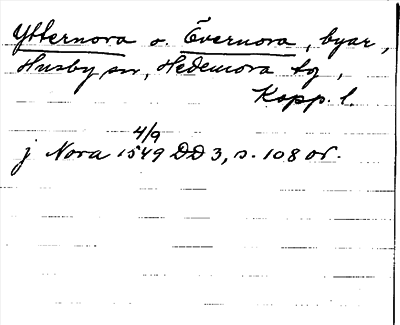 Ytternora o. Övernora, byar,
Husby sn, Hedemora tg,
Kopp. l.
4/9
j Nora 1549 DD 3, s. 108 or.